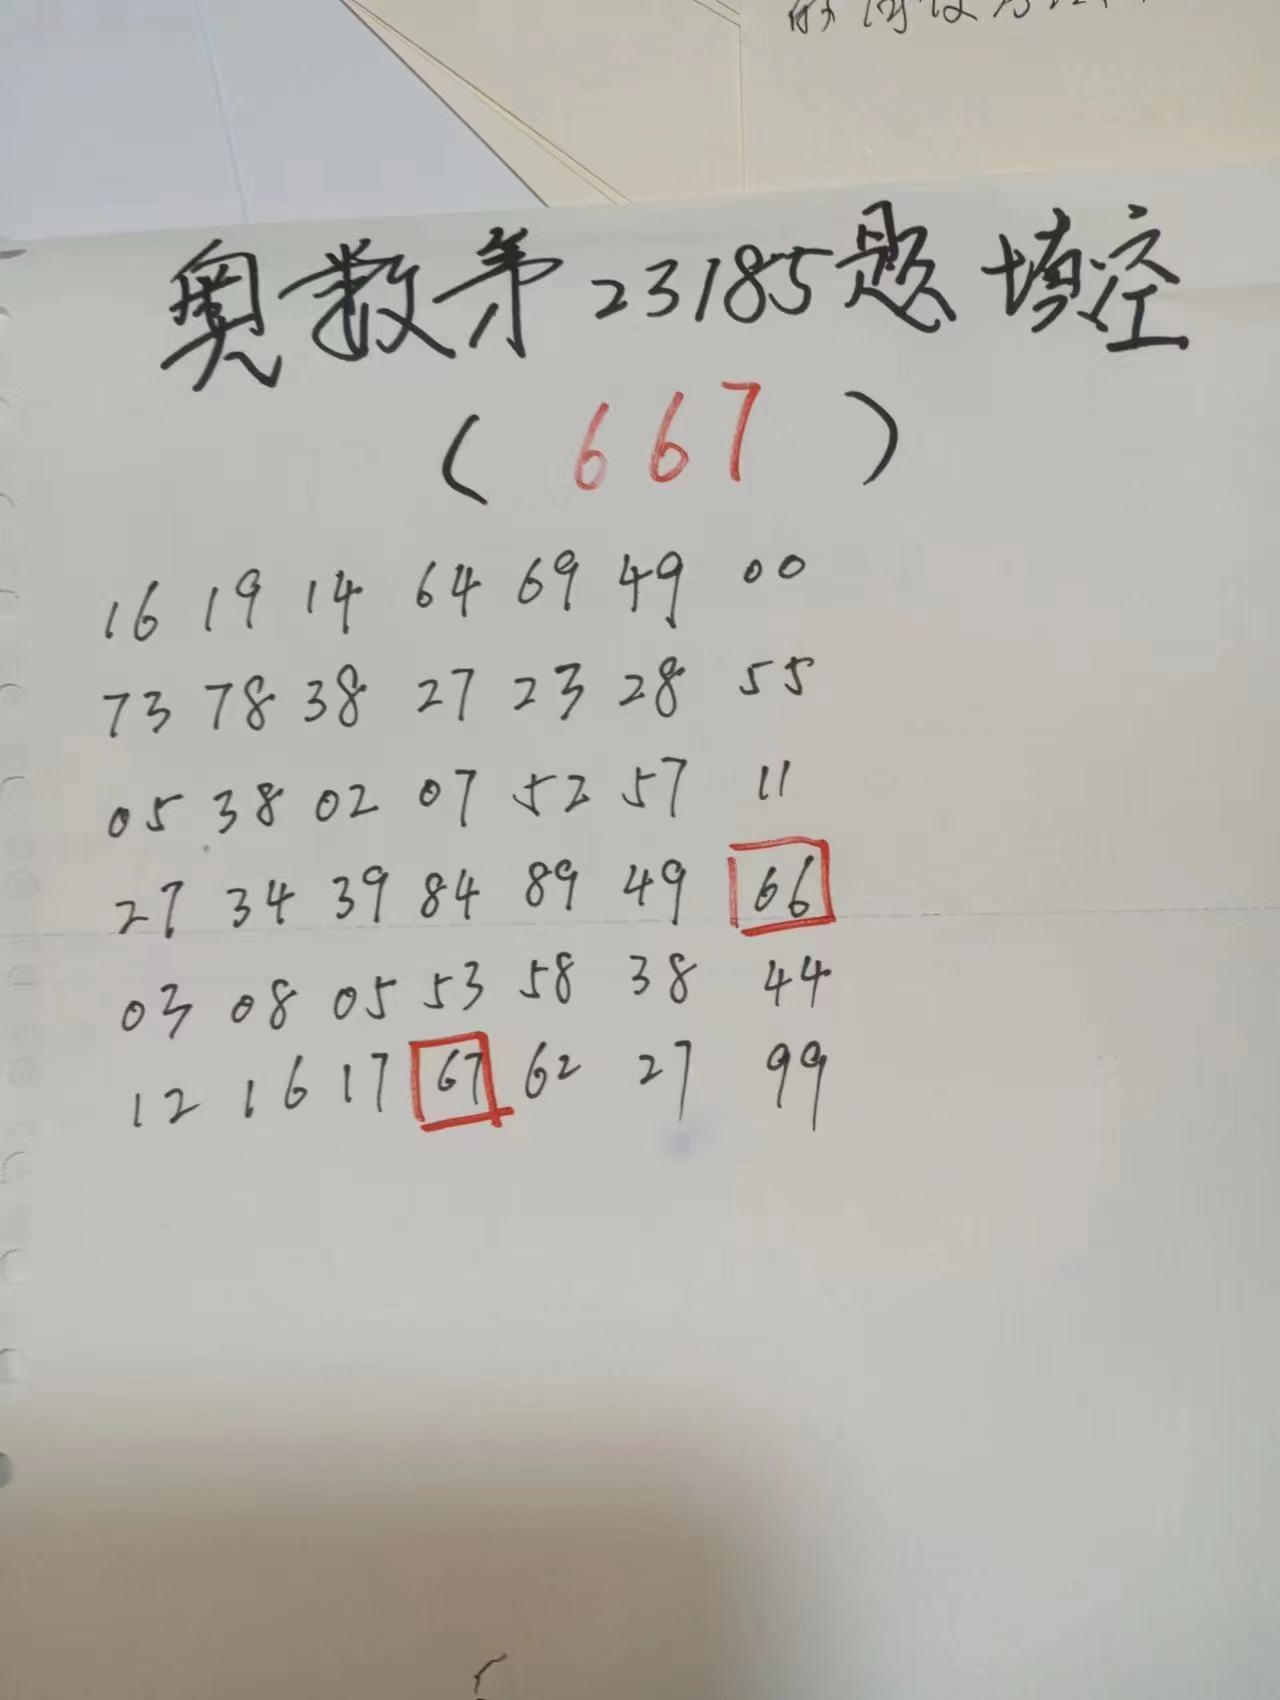 奥数第23185题填空
(667)
16 19 14 64 69 49 00
73 78 38 27 23 28 55
05 38 02 07 52 57 11
27 34 39 84 89 49 66
03 08 05 53 58 38 44
12 16 17 67 62 27 99